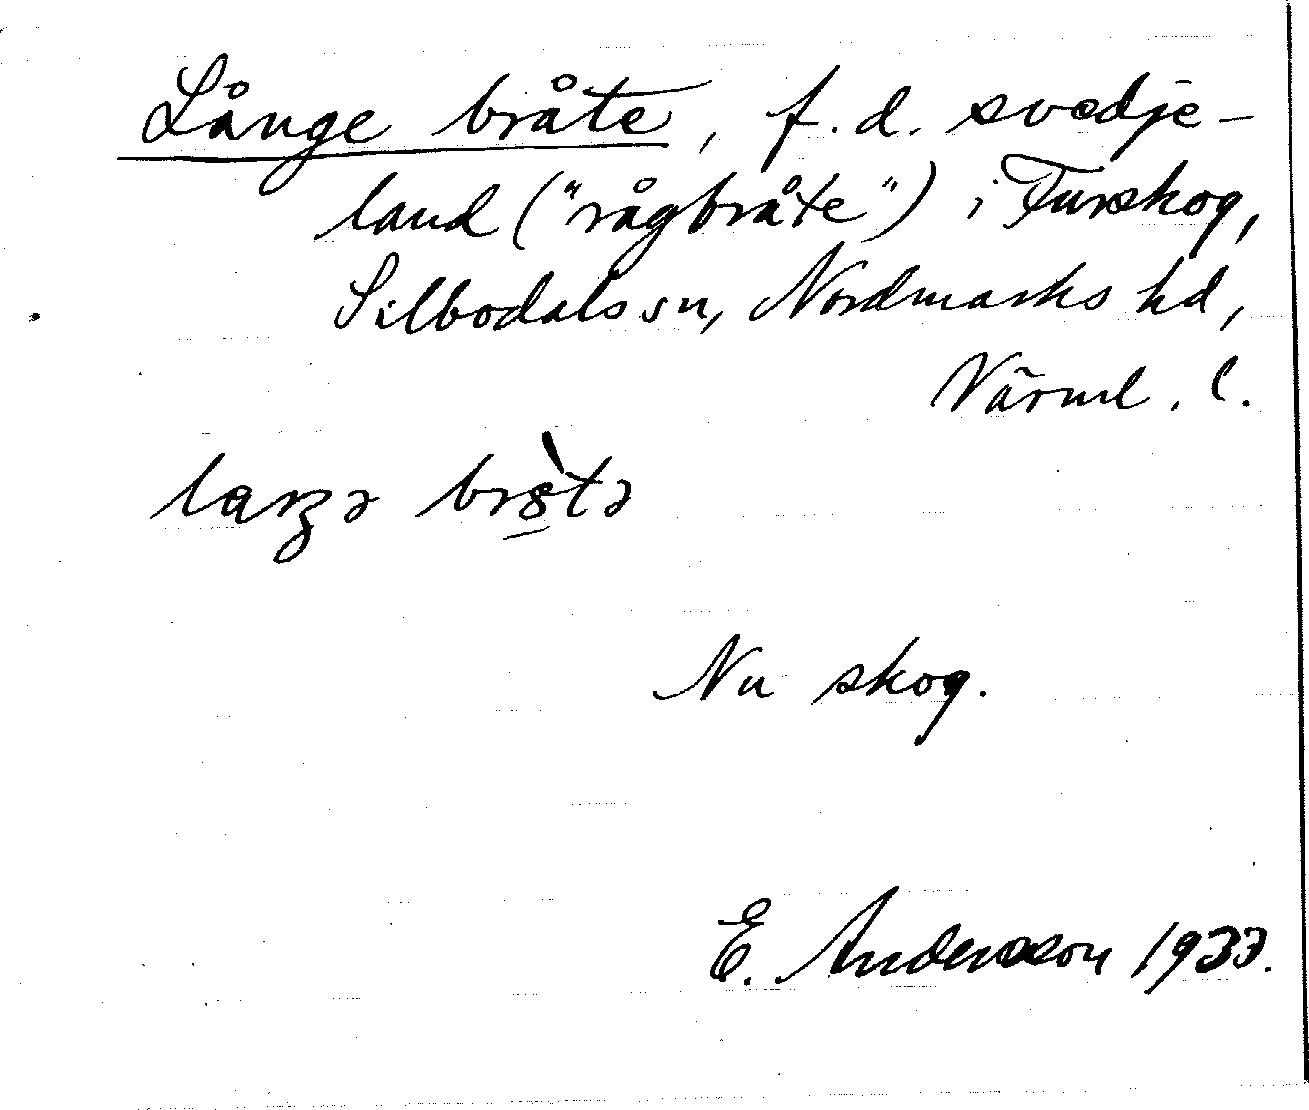 Långe bråte, f.d. svedje-
land ("rågbråte") i Furskog,
Silbodals sn, Nordmarks hd,
Värml. l.
Nu skog.
E. Andersson 1933.